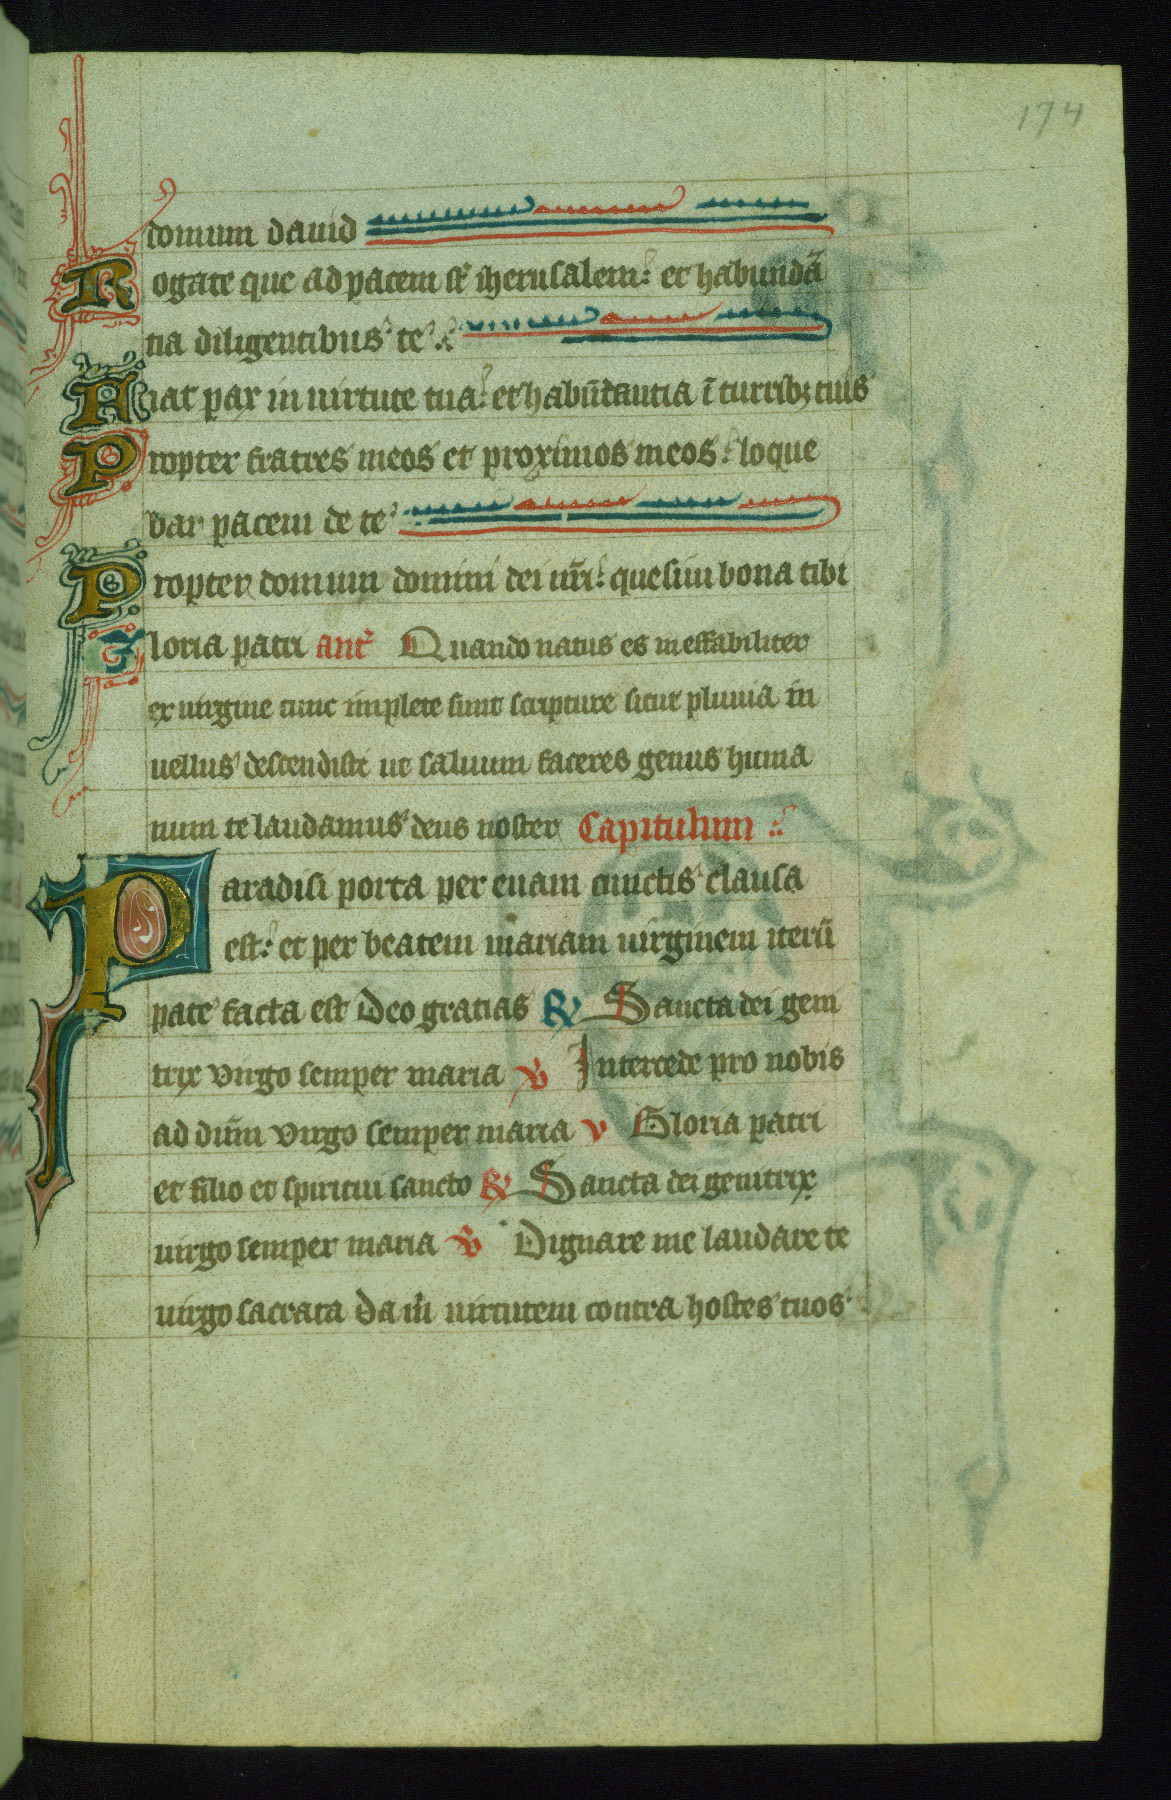 174
domum dauid
Rogate que ad pacem st̉ iherusalem: et habundā
tia diligentibus te
Fiat pax in uirtute tua: et habūdantia ī turribꝫ tuis
Propter fratres meos et proximos meos: loque
bar pacem de te
Propter domum domini dei nr̄i: quesiui bona tibi
Gloria patri ant̉ Quando natus es ineffabiliter
ex uirgine tunc implete sunt scripture sicut pluuia in
uellus descendisti ut saluum faceres genus huma
num te laudamus deus noster Capitulum
Paradisi porta per euam cunctis clausa
est: et per beatem mariam uirginem iterū
pate facta est Deo gratias ℟ Sancta dei geni
trix virgo semper maria ℣ Intercede pro nobis
ad dūm virgo semper maria v Gloria patri
et filio et spiritui sancto ℟ Sancta dei genitrix
uirgo semper maria ℣ Dignare me laudare te
uirgo sacrata Da m̉ uirtutem contra hostes tuos